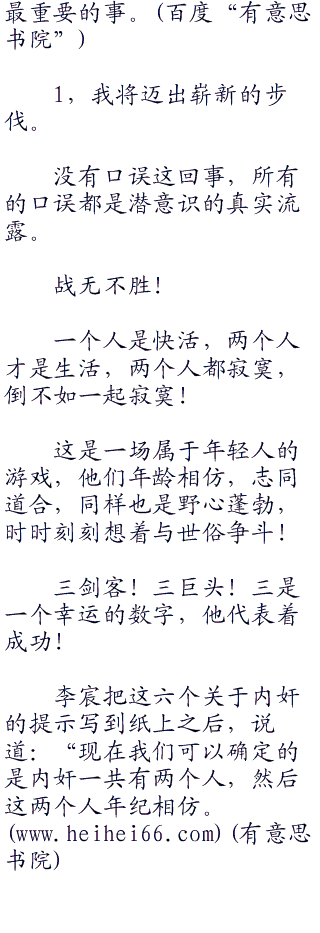 最重要的事。(百度“有意思
书院”)
1，我将迈出崭新的步
伐。
没有口误这回事，所有
的口误都是潜意识的真实流
露。
战无不胜！
一个人是快活，两个人
才是生活，两个人都寂寞，
倒不如一起寂寞！
这是一场属于年轻人的
游戏，他们年龄相仿，志同
道合，同样也是野心蓬勃，
时时刻刻想着与世俗争斗！
三剑客！三巨头！三是
一个幸运的数字，他代表着
成功！
李宸把这六个关于内奸
的提示写到纸上之后，说
道：“现在我们可以确定的
是内奸一共有两个人，然后
这两个人年纪相仿。
(www.heihei66.com)(有意思
书院)